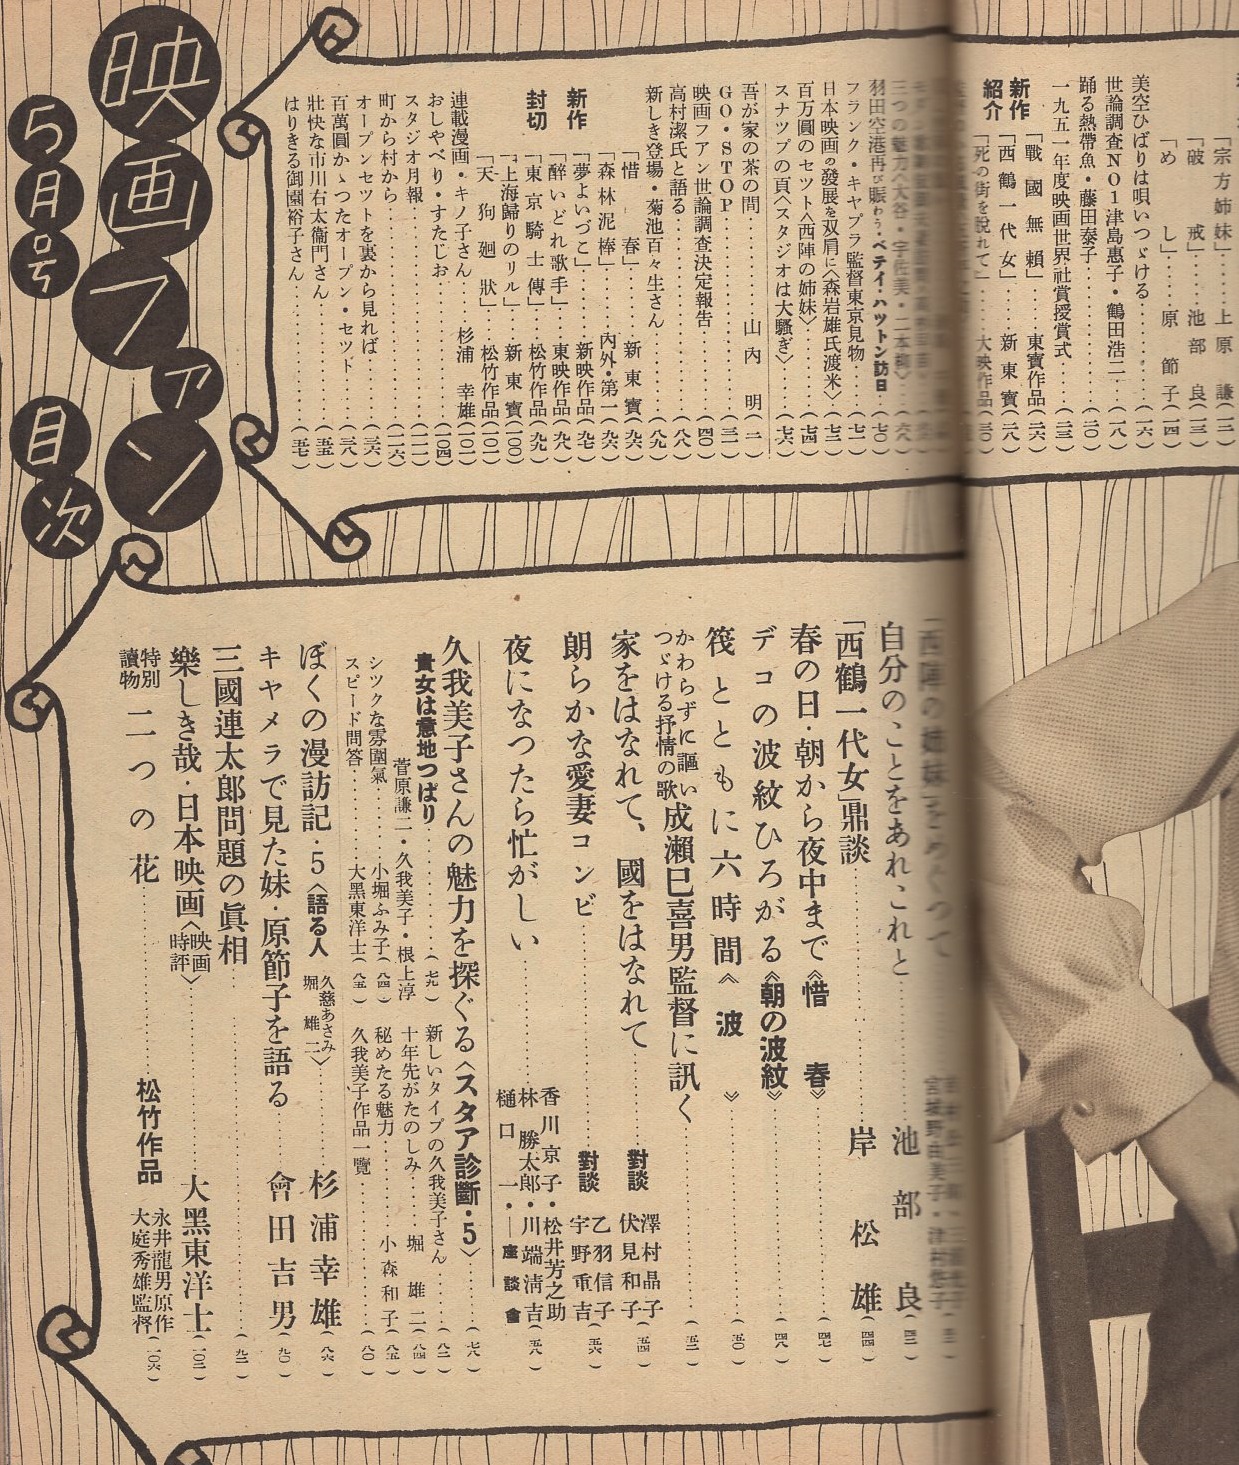 映画ファン
5月号
目次
「宗方姉妹」……上原謙(一二)
「破戒」……池部良(一三)
「めし」……原節子(一四)
美空ひばりは唄いつゞける……(一六)
世論調査NO1津島恵子・鶴田浩二……(一八)
踊る熱帶魚・藤田泰子……(二〇)
一九五一年度映画世界社賞授賞式……(二三)
新作紹介
「戰國無頼」……東寶作品(二六)
「西鶴一代女」……新東寶(二八)
「死の街を脱れて」……大映作品(三〇)
三つの魅力〈大谷・宇佐美・二本柳〉……(六八)
羽田空港再び賑わう・ベテイ・ハットン訪日……(七〇)
フランク・キャプラ監督東京見物……(七一)
日本映画の発展を双肩に〈森岩雄氏渡米〉……(七三)
百万圓のセット〈西陣の姉妹〉……(七四)
スナツプの頁〈スタジオは大騒ぎ〉……(七六)
吾が家の茶の間……山内明(二)
GO・STOP……(三一)
映画フアン世論調査決定報告……(四〇)
高村潔氏と語る……(八八)
新しき登場・菊池百々生さん……(八九)
新作封切
「惜春」……新東寶(九六)
「森林泥棒」……内外・第一(九六)
「夢よいづこ」……新映作品(九七)
「醉いどれ歌手」……東映作品(九八)
「東京騎士傳」……松竹作品(九九)
「上海歸りのリル」……新東寶(一〇〇)
「天狗廻狀」……松竹作品(一〇一)
連載漫画・キノ子さん……杉浦幸雄(一〇二)
おしやべり・すたじお……(一〇四)
スタジオ月報……(一一一)
町から村から……(一一六)
オープンセツトを裏から見れば……(三六)
百萬圓かゝつたオープン・セツト……(三八)
壯快な市川右太衞門さん……(五五)
はりきる御園裕子さん……(五七)
「西陣の姉妹」をめぐつて……宮城野由美子・津村悠子
自分のことをあれこれと……池部良(四三)
「西鶴一代女」鼎談……岸松雄(四四)
春の日・朝から夜中まで《惜春》……(四七)
デコの波紋ひろがる《朝の波紋》……(四八)
筏とともに六時間《波》……(五〇)
かわらずに謳いつゞける抒情の歌 成瀬巳喜男監督に訊く……(五二)
家をはなれて、國をはなれて 對談 澤村晶子 伏見和子(五四)
朗らかな愛妻コンビ……對談 乙羽信子 宇野重吉(五六)
夜になつたら忙がしい……香川京子・松井芳之助 林勝太郎・川端清吉 樋口一・―座談會(五八)
久我美子さんの魅力を探ぐる〈スタア診斷・5〉……(七八)
貴女は意地つぱり……(七九)
菅原謙二・久我美子・根上淳
シツクな雰圍氣……小堀ふみ子(八四)
スピード問答……大黑東洋士(八五)
新しいタイプの久我美子さん……(八二)
十年先がたのしみ……堀雄二(八四)
秘めたる魅力……小森和子(八五)
久我美子作品一覽……(八〇)
ぼくの漫訪記・5〈語る人 久慈あさみ 堀雄二〉……杉浦幸雄(八六)
キヤメラで見た妹・原節子を語る……會田吉男(九〇)
三國連太郎問題の眞相……(九二)
樂しき哉・日本映画〈映画時評〉……大黑東洋士(一〇二)
特別讀物 二つの花……松竹作品 永井龍男原作 大庭秀雄監督(一〇六)